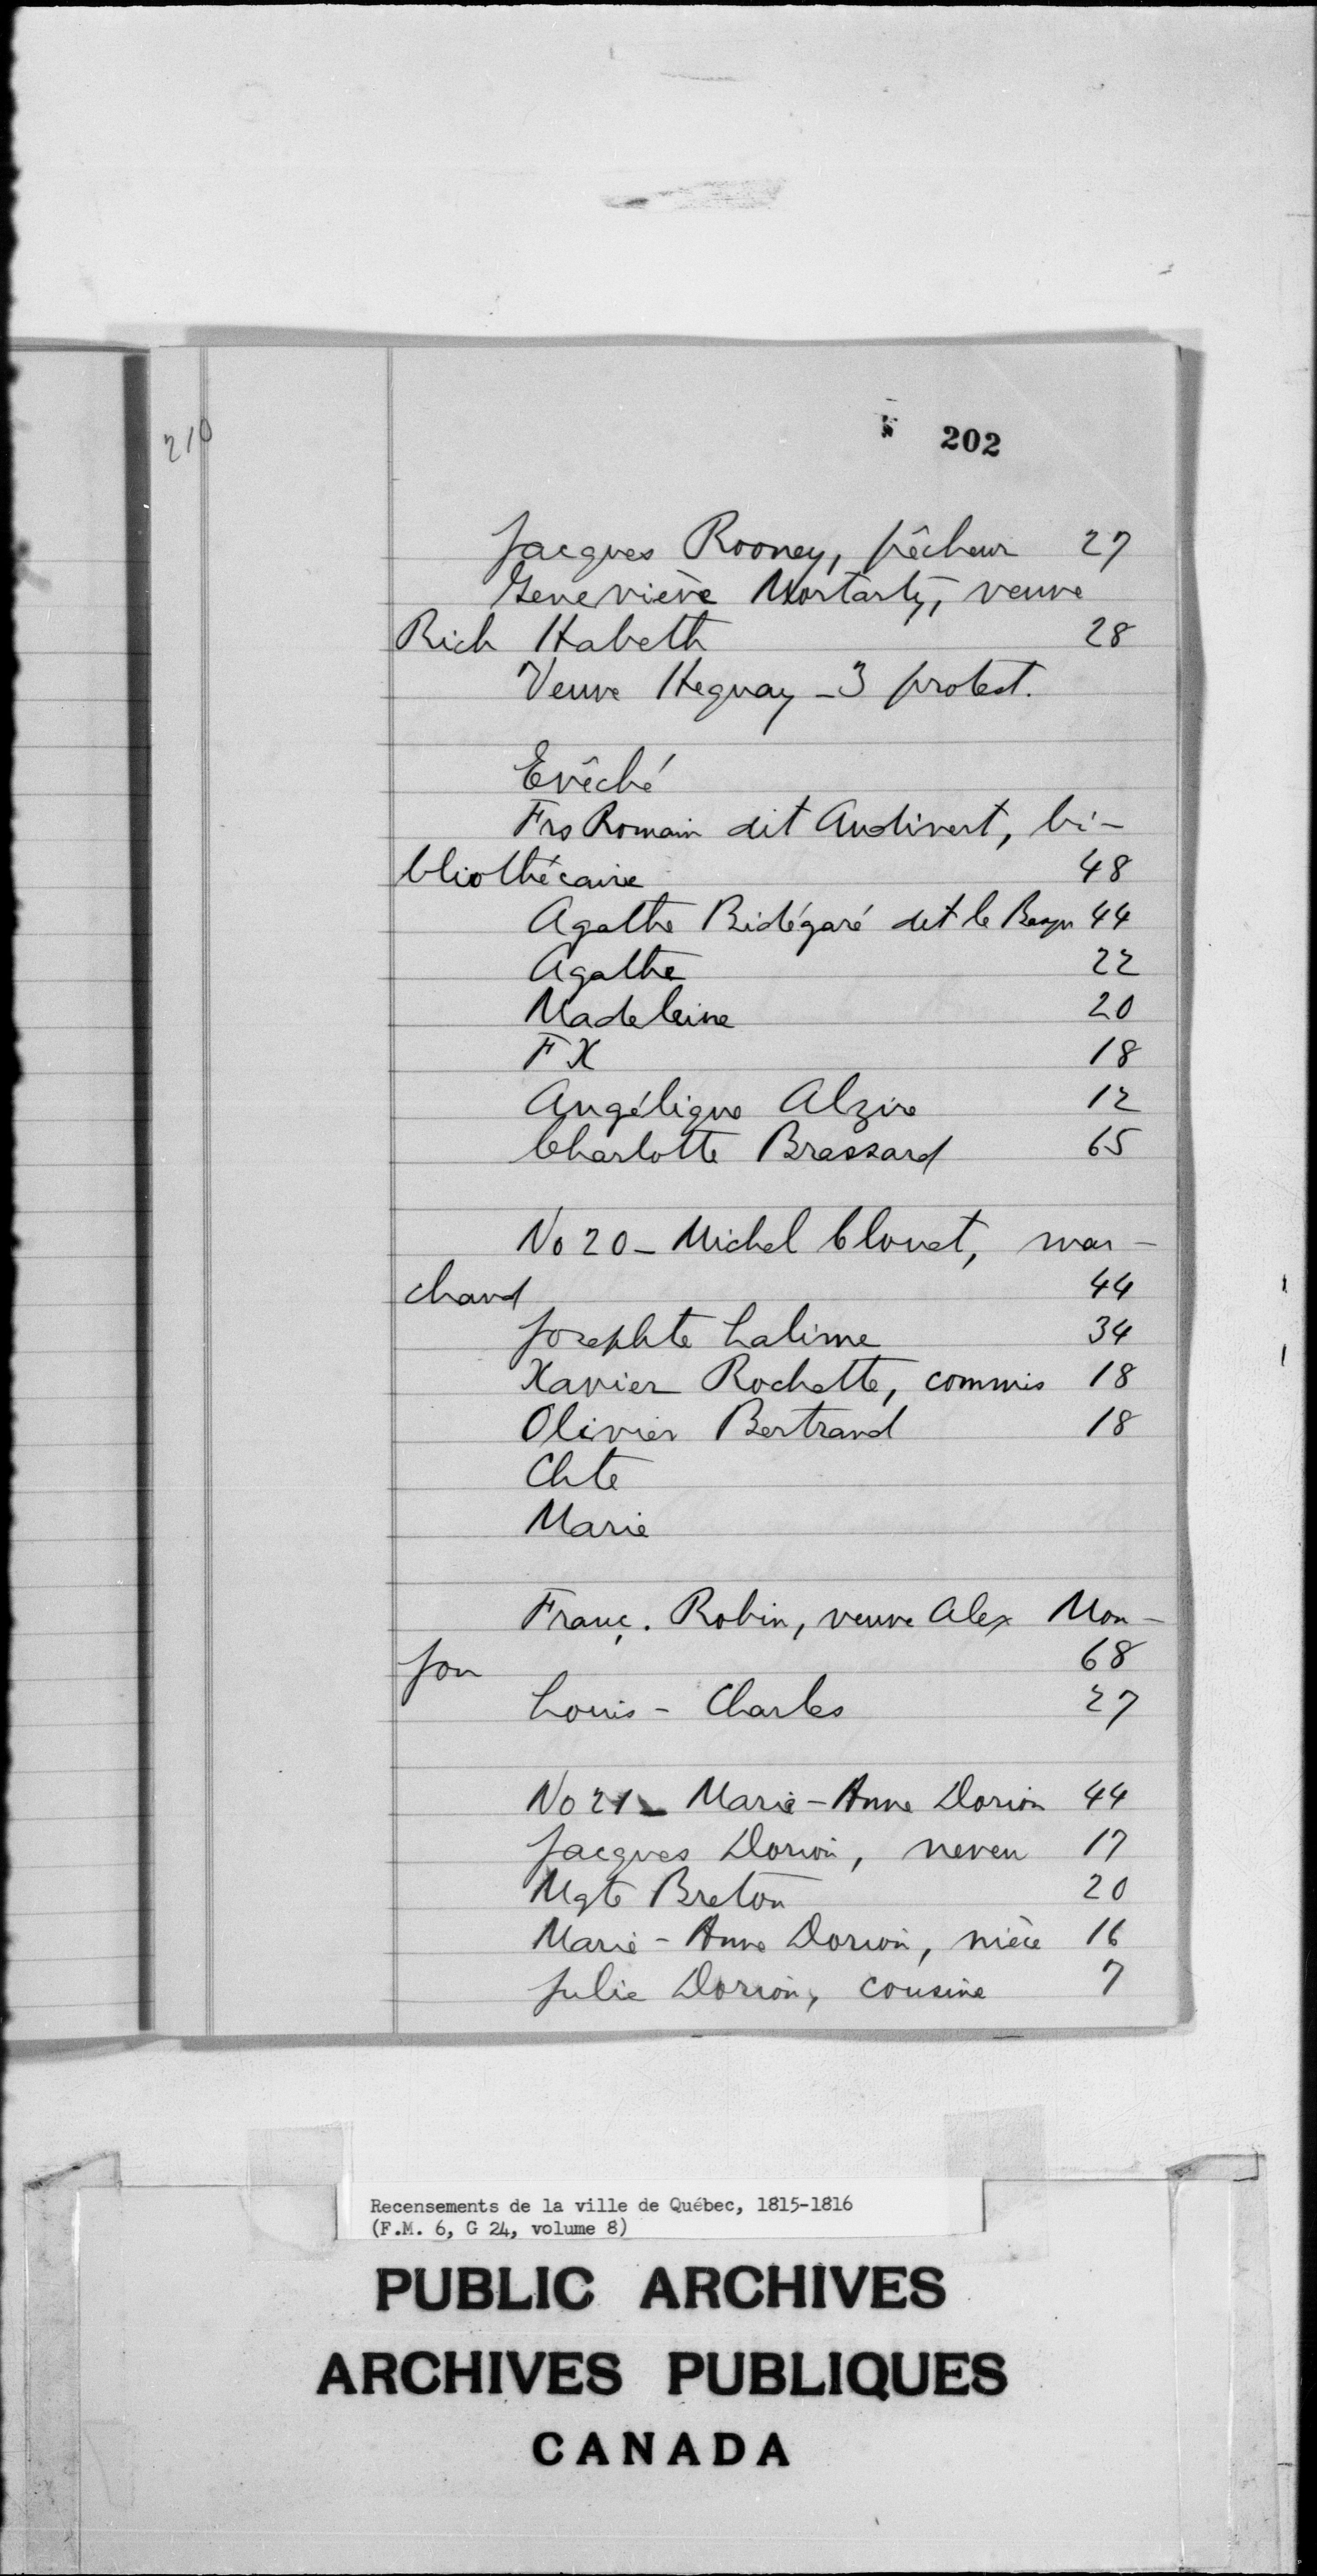 210
202
Jacques Rooney, pêcheur 27
Geneviève Mortarty, veuve
Rich Habeth 28
Veuve Heguay - 3 protest.
Evêché
Frs Romain dit Audivert, bi-
bliothécaire 48
Agathe Bidégaré dit le Basqu 44
Agathe 22
Madeleine 20
F X 18
Angélique Alzire 12
Charlotte Brassard 65
No 20 - Michel Clouet, mar-
chand 44
Josephte Lalime 34
Xavier Rochette, commis 18
Olivier Bertrand 18
Chte
Marie
Franç. Robin, veuve Alex Mon-
jon 68
Louis - Charles 27
No 21 - Marie - Anne Dorion 44
Jacques Dorion, neveu 17
Mgte Breton 20
Marie - Anne Dorion, nièce 16
Julie Dorion, cousine 7
Recensements de la ville de Québec, 1815-1816
(F.M. 6, G 24, volume 8)
PUBLIC ARCHIVES
ARCHIVES PUBLIQUES
CANADA